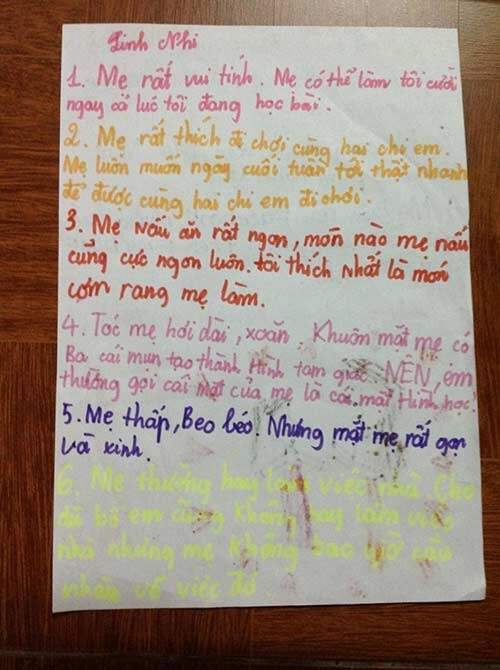 Linh Nhi
1. Mẹ rất vui tính. Mẹ có thể làm tôi cười
ngay cả lúc tôi đang học bài.
2. Mẹ rất thích đi chơi cùng hai chị em.
Mẹ luôn muốn ngày cuối tuần tới thật nhanh
để được cùng hai chị em đi chơi.
3. Mẹ nấu ăn rất ngon, món nào mẹ nấu
cũng cực ngon luôn. tôi thích nhất là món
cơm rang mẹ làm.
4. Tóc mẹ hơi dài, xoăn. Khuôn mặt mẹ có
Ba cái mụn tạo thành Hình tam giác. NÊN, em
thường gọi cái mặt của mẹ là cái mặt Hình học!
5. Mẹ thấp, Beo béo. Nhưng mặt mẹ rất gọn
và xinh.
6. Mẹ thường hay làm việc nhà. Cho
dù bố em cũng không hay làm việc
nhà nhưng mẹ không bao giờ cằn
nhằn về việc đó.